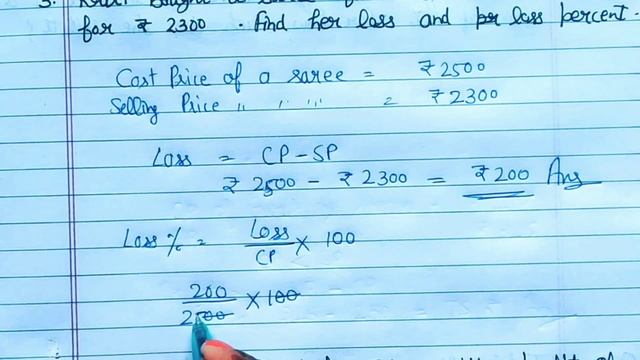 for ₹ 2300 . Find her loss and loss percent.
Cost Price of a saree = ₹2500
Selling Price " " " = ₹2300
Loss = CP-SP
₹ 2500 - ₹ 2300 = ₹200 Ans
Loss % = Loss/CP × 100
200/2500 × 100